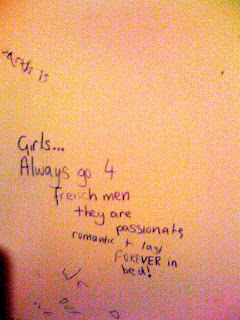 Girls...
Always go 4
french men
they are
passionate,
romantic + last
FOREVER in
bed!